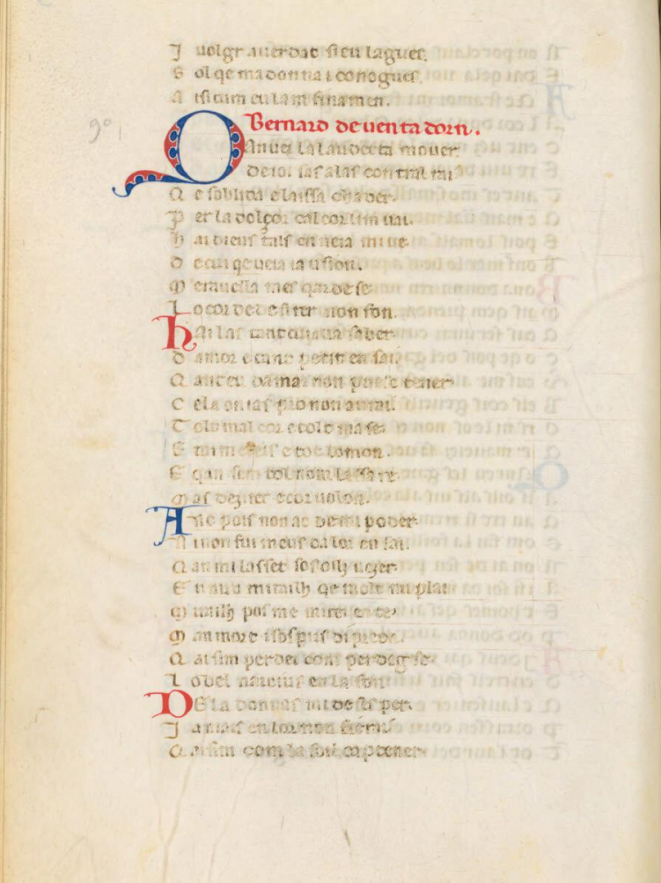 I uolgr auer dat si eu lagues.
S ol qe ma donna i conogues.
A isi cum eu lam finamen.
Bernard de uentadorn.
Qan uei la laudeta mouer
De ioi sas alas contral rai
Q e soblida e laissa chader.
P er la dolçor cal cor lim uai.
h ai dieus tals en
D e cui qe ueia iausion.
M erauella mes qar dese
L o cor de desirer non fon.
hAi las tant cuiaua saber
D amor e tan petit en sai.
Q ar eu damar non puesc tener
C ela on ia pro non aurai.
T olt mal cor e tolt ma se
E mi e tot lo mon.
E qan sem tol nom laissa re
M as dezirer e cor uolon.
Anc pois non ac de mi poder
N i non fui meus da lor en sai
Q an mi lasset sos oilh uezer
E n un mirailh qe molt mi plai
M irailh pos me mirei en te
M an mort
Q aisim perdei com perdeg se
L o bel narcisus en la fon
DE las donnas mi desesper.
I amais en lor non
Q aisim com las soil captener